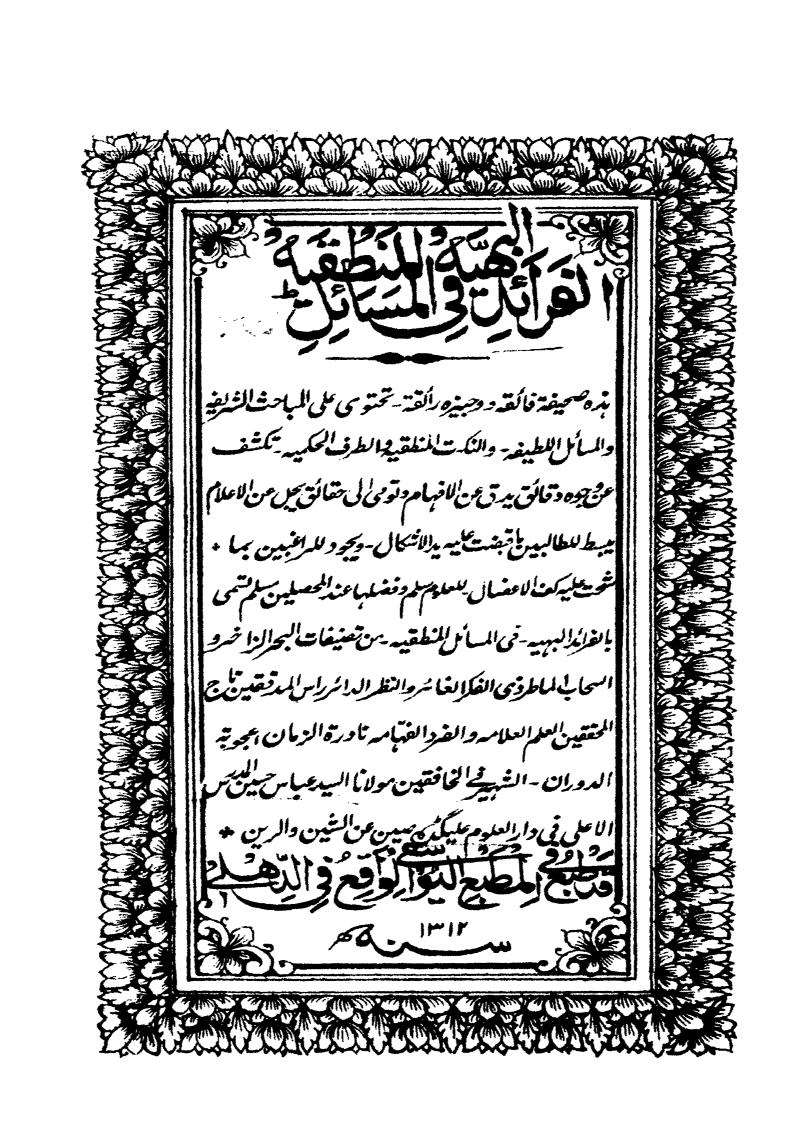 الفرائد البهية في المسائل المنطقية
هذه صحيفة فائقه ووجيزه رائقة - تحتوى على المباحث الشريفه
والمسائل اللطيفه - والنكت المنطقيه والطرف الحكميه - تكشف
عن وجوه دقائق يدق عن الافهام وتومى الى حقائق يجل عن الاعلام
يبسط للطالبين ما قبضت عليه يد الاشكال - ويجود للراغبين بما
شوت عليه كف الاعضال - للعلوم سلم وفضلها عند المحصلين مسلم تسمى
بالفرائد البهيه - فى المسائل المنطقيه - من تصنيفات البحر الزاخر و
السحاب الماطر ذى الفكر الغائر والنظر الدائر راس المدققين تاج
المحققين العلم العلامه والفرد الفهامه نادرة الزمان اعجوبة
الدوران - الشهير فى الخافقين مولانا السيد عباس حسين المدرس
الاعلى فى دار العلوم عليگڈه صين عن الشين والرين *
قد طبع فى المطبع اليوسفى الواقع فى الدهلى
سنه ١٣١٢ ھ